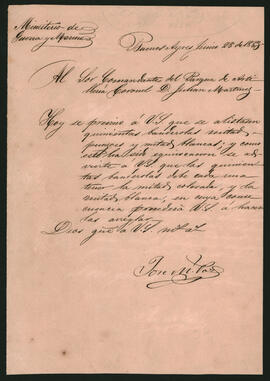 Ministerio de
Guerra y Marina
Buenos Ayres Junio 28 de 1853
Al Sor Comandante del Parque de Arti-
llería Coronel D. Julian Martinez
Hoy se previno á V.S. que se alistaran
quinientas banderolas mitad
punzoes y mitad blancas; y como
esto ha sido equivocacion se ad-
vierte a V.S. que las quinien-
tas banderolas debe cada una
tener la mitad colorada, y la
mitad blanca, en cuya conse-
cuencia procederá V.S. á hacer-
las arreglar.
Dios gue a V.S. ms. as.
Jose M. Paz